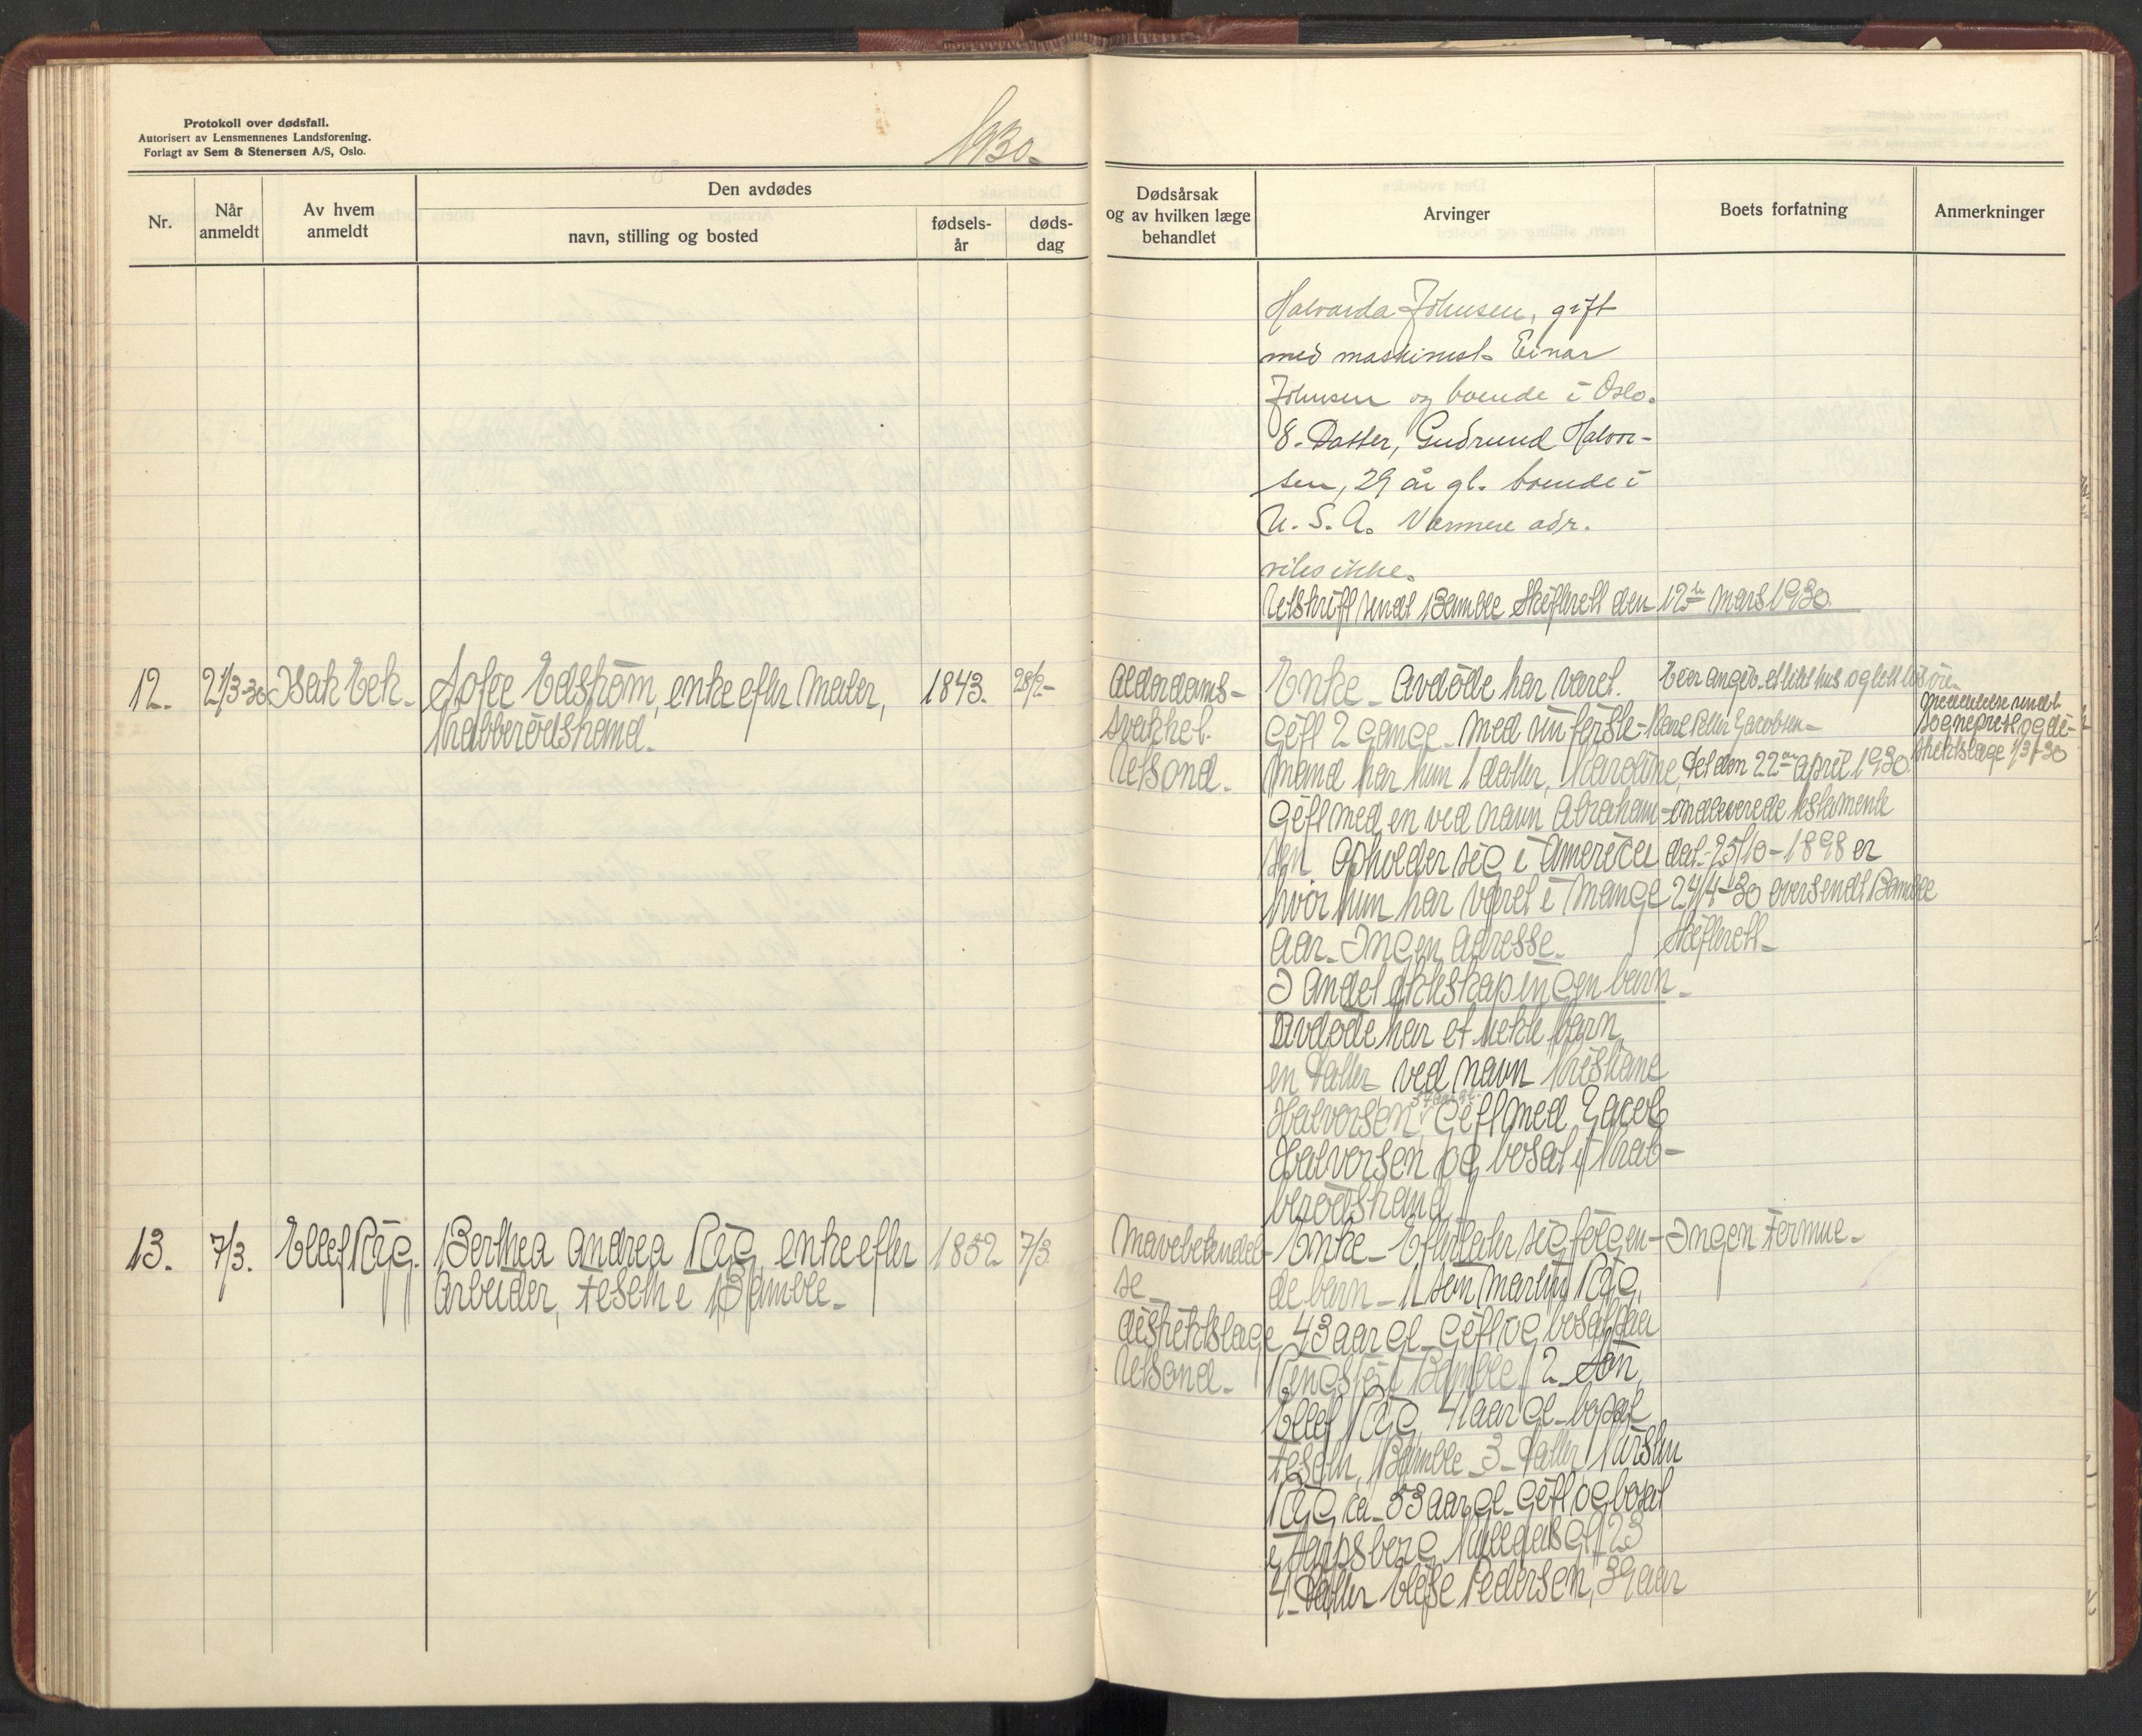 Protokoll over dødsfall.
Autorisert av Lensmennenes Landsforening.
Forlagt av Sem & Stenersen A/S, Oslo.
1930.
Nr.
Når anmeldt
Av hvem anmeldt
Den avdødes
navn, stilling og bosted
fødsels-
år
døds-
dag
Dødsårsak
og av hvilken læge
behandlet
Arvinger
Boets forfatning
Anmerkninger
Halvarda Johnsen, gift
med maskinist Einar
Johnsen og boende i Oslo.
8. Datter, Gudrund Halvor-
sen, 29 år gl. boende i
U. S. A. Nærmere adr.
vites ikke.
Utskrift sendt Bamble Skifterett den 12te Mars 1930.
12.
2/3-30
Isak Eek.
Sofie Edstrøm, enke efter Maler,
Krabberødstrand.
1843.
28/2-
Alderdoms-
svakhet.
Ulsond.
Enke - Avdøde har været
Gift 2 Gange. Med sin første-
Mand har hun 1 datter, Karoline,
Gift med en ved navn Abraham-
sen opholder sig i America
hvor hun har været i Mange
Aar. Ingen Adresse.
I Andet ekteskap ingen barn.
Avdøde har et barn,
en Datter ved navn Kristiane
Halvorsen Gift med Jacob
Halvorsen og bosat i Krab-
berødstrand
et litet hus og litt
Karl Peter Jacobsen-
Det den 22 April 1930
testamente
dat. 25/10-1898 er
24/4-30 oversendt Bamble
Skifterett-
Meddelelse sendt
Sogneprest og di-
striktslæge 1/3-30
13.
7/3.
Ellef Råg.
Berthea Andrea Råg, enke efter
Arbeider, Feset i Bamble.
1852
7/3
Mavebetendel-
se
distriktslæge
Ulsond.
Enke - Efterlater sig følgen-
de barn - 1 søn Martin Råg,
43 aar gl. Gift og bosat paa
i Bamble 2 Søn,
Ellef Råg 41 aar gl. bosat
Bamble 3. Datter Kirsten
Råg ca. 53 aar gl. Gift og bosat
i Sarpsborg 23
4. Datter Elise Pedersen, 39 aar
Ingen Formue.